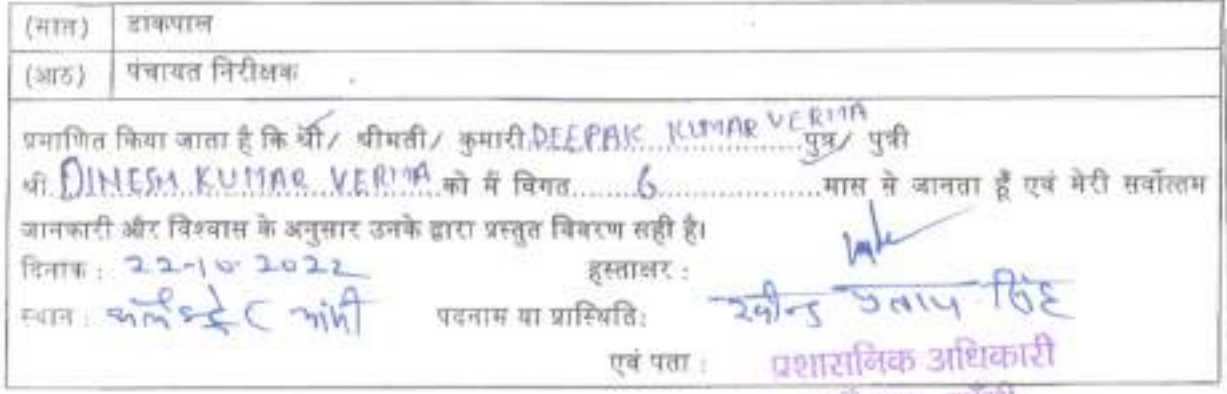 (सात) डाकपाल
(आठ) पंचायत निरीक्षक
प्रमाणित किया जाता है कि श्री/ श्रीमती/ कुमारी.DEEPAK KUMAR VERMA पुत्र/ पुत्री
श्री. DINESH KUMAR VERMA को मैं विगत........6....................मास से जानता हूँ एवं मेरी सर्वोत्तम
जानकारी और विश्वास के अनुसार उनके द्वारा प्रस्तुत विवरण सही है।
दिनांक : 22-10-2022 हस्ताक्षर :
स्थान : पदनाम या प्रास्थिति: रवीन्द्र प्रताप सिंह
एवं पता : प्रशासनिक अधिकारी